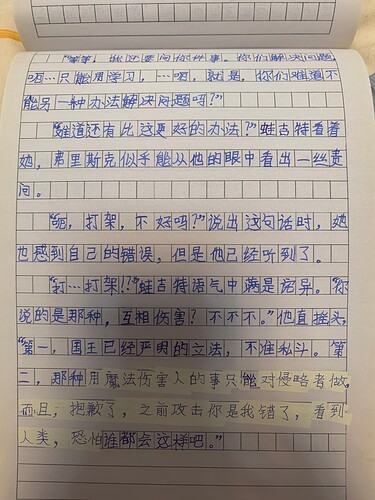 "等等，我还要问你件事。你们解决问题，
呃…只能用学习，…呃，就是，你们难道不
能另一种办法解决问题吗？"
"难道还有比这更好的办法？"蛙古特看着
她，弗里斯克似乎能从他的眼中看出一丝责
问。
"呃，打架，不好吗？"说出这句话时，她
也感到自己的错误，但是他已经听到了。
"打…打架！！"蛙古特语气中满是诧异。"你
说的是那种，互相伤害？不不不。"他直摇头，
"第一，国王已经严明的立法，不准私斗。第
二，那种用魔法伤害人的事只能对侵略者做。
而且，抱歉了，之前攻击你是我错了，看到
人类，恐怕谁都会这样吧。"